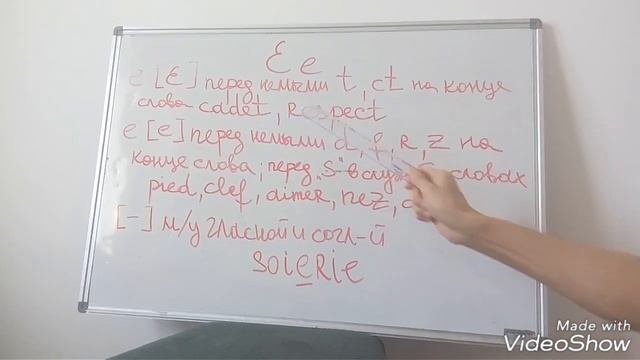 Ee
e [ɛ] перед немыми t, ct на конце
слова cadet, Respect
e [e] перед немыми d, f, R, Z на
конце слова; перед "S" в словах
pied, clef, dimer, nez,
[-] м/у гласной и согл-й
soieRie
Made with
VideoShow